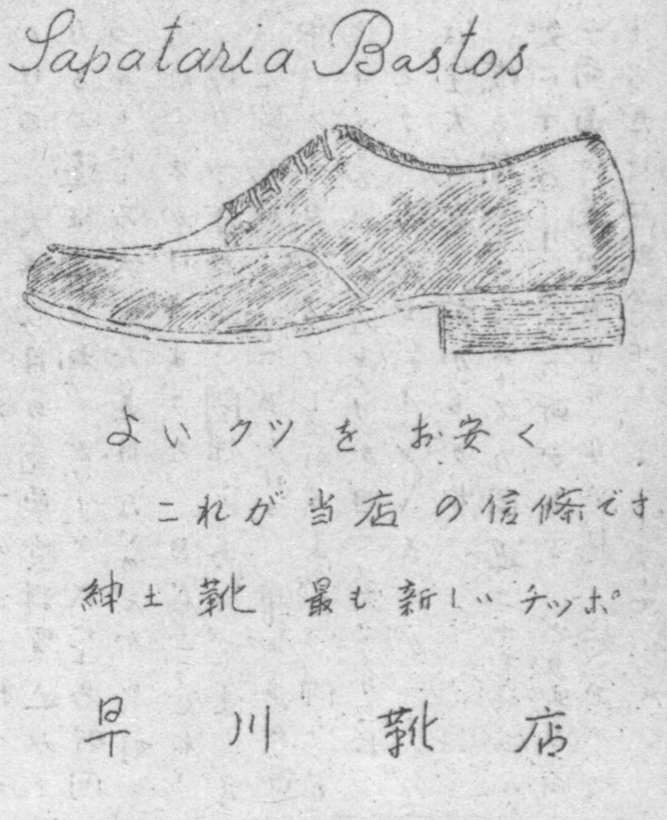 Sapataria Bastos
よいクツをお安く
これが当店の信條です
紳士靴 最も新しいチッポ
早川靴店